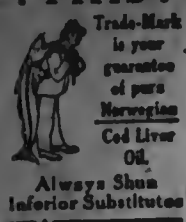 Trade-Mark
is your
guarantee
of pure
Norwegian
Cod Liver
Oil.
Always Shun
Inferior Substitutes